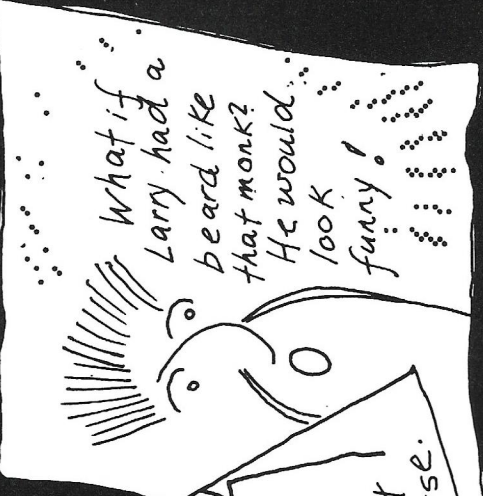 What if
Larry had a
beard like
that monk?
He would
look
funny!